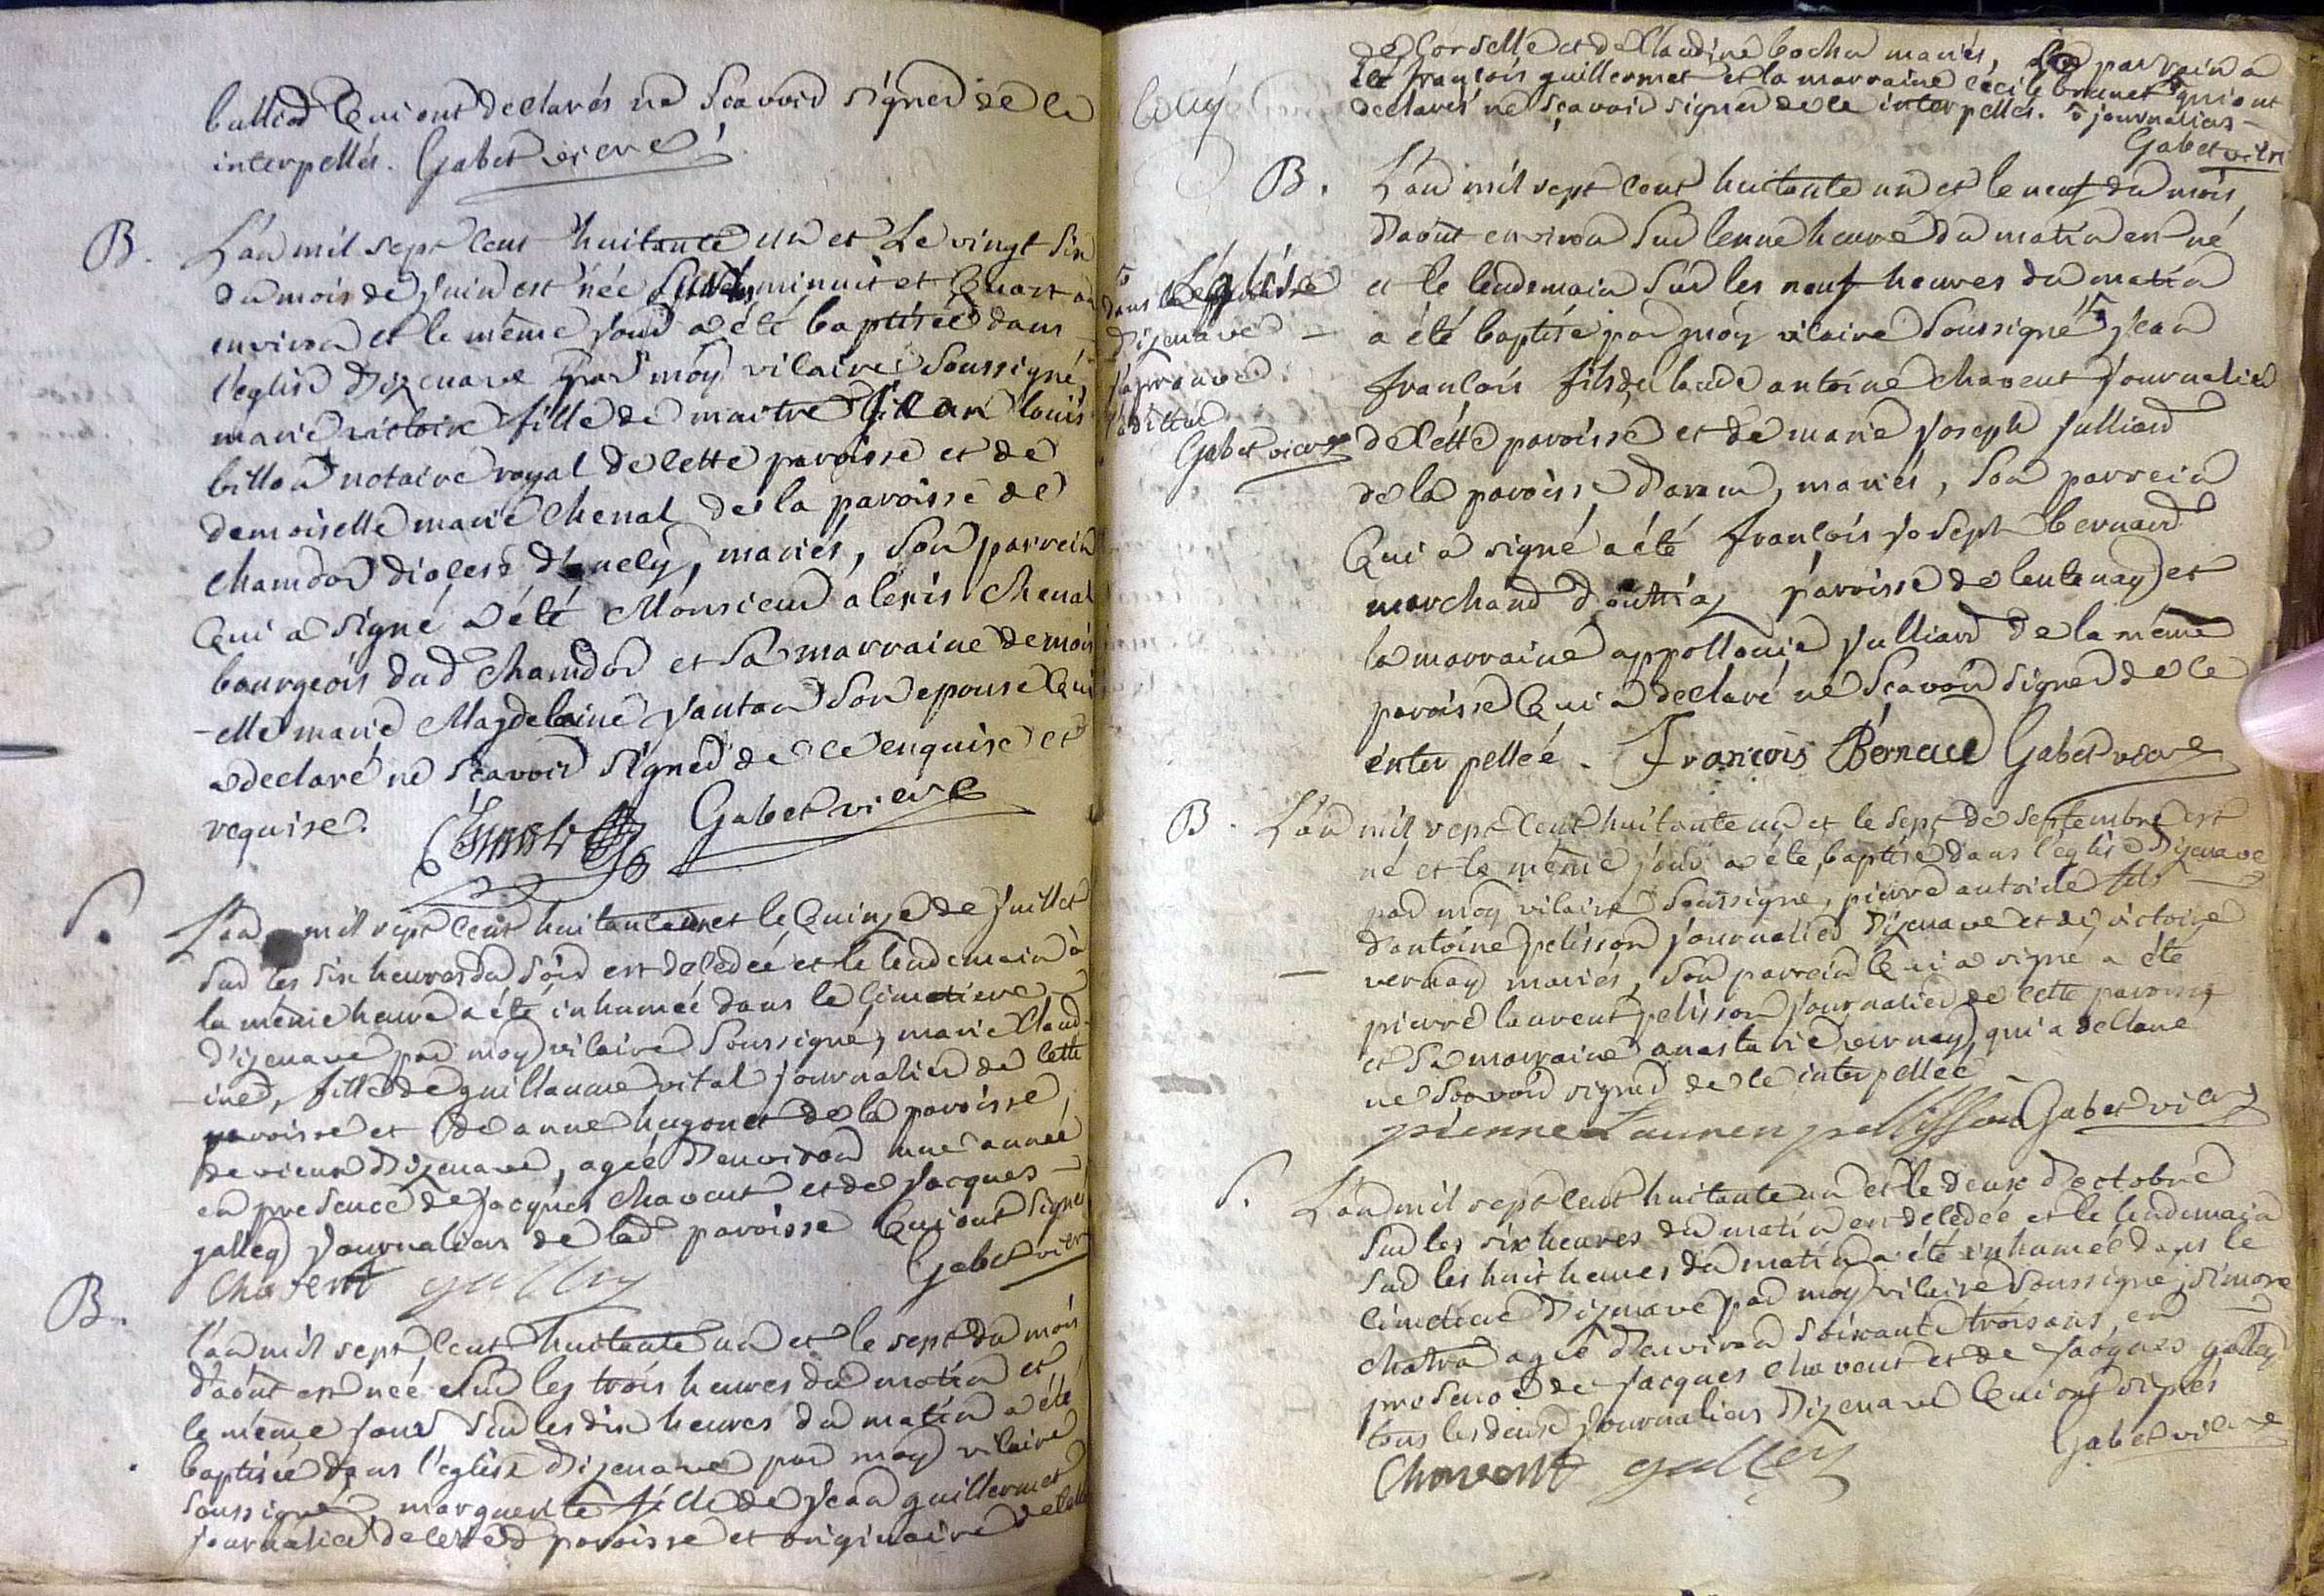 balliod qui ont declarés ne scavoir signer de ce
interpellés. Gabet vicaire
B. L'an mil sept cent huitante un et le vingt six
du mois de juin est née minuit et quart
environ et le meme jour a été baptisée dans
l'eglise d'izenave par moy vicaire soussigné,
marie victoire fille de maitre louis
billon notaire royal de cette paroisse et de
demoiselle marie chenal de la paroisse de
chamdor diocese d'annecy, mariés, son parrein
qui a signé a été Monsieur alexis chenal
bourgeois dud chamdor et sa marraine demois
-elle marie Magdelaine son epouse qui
a declaré ne sçavoir signer de ce enquise et
requise. Gabet vicaire
S. L'an mil sept cent huitante un et le quinze de juillet
sur les six heures du soir est decedée et le lendemain à
la même heure a été inhumée dans le cimetiere
d'izenave par moy vicaire soussigné, marie claud-
-ine, fille de guillaume vital journalier de cette
paroisse et de anne hugonet de la paroisse
de vieux d'izenave, agée d'environ une année
en presence de jacques chavent et de jacques
galley journaliers de lad paroisse qui ont signé
Chavent galley Gabet vicaire
B. L'an mil sept cent huitante un et le sept du mois
d'aout est née sur les trois heures du matin et
le même jour sur les dix heures du matin a été
baptisée dans l'eglise d'izenave par moy vicaire
soussigné marguerite fille de jean guillermet
journalier de cette paroisse et originaire de celle
de corcelle et de claudine bochu mariés, parrain a
été françois guillermet et la marraine cecile brunet qui ont
declarés ne sçavoir signer de ce interpellés. journaliers
Gabet vicre
B. L'an mil sept cent huitante un et le neuf du mois
d'aout environ sur l'enne heure du matin est né
et le lendemain sur les neuf heures du matin
a été baptisé par moy vicaire soussigné jean
dans l'église
d'izenave
j'aprouve
l'adition
Gabet vicre
françois fils de claude antoine chavent journalier
de cette paroisse et de marie joseph julliard
de la paroisse d'aranc, mariés, son parrein
qui a signé a été françois joseph bernard
marchand d'outriaz paroisse de lentenay et
la marraine appollonie julliard de la même
paroisse qui a declaré ne sçavoir signer de ce
interpellée. François Bernard Gabet vicre
B. L'an mil sept cent huitante un et le sept de septembre est
né et le même jour a été baptisé dans l'eglise d'izenave
par moy vicaire soussigné, pierre antoine fils
d'antoine pelisson journalier d'izenave et de victoire
vernay mariés, son parrein qui a signé a été
pierre laurent pelisson journalier de cette paroisse
et sa marraine anastasie vernay, qui a declaré
ne scavoir signer de ce interpellée
pierre Lauren pellisson Gabet vicre
S. L'an mil sept cent huitante un et le deux d'octobre
sur les six heures du matin est decedée et le lendemain
sur les huit heures du matin a été inhumée dans le
cimetiere d'izenave par moy vicaire soussigné, simone
chatra agée d'environ soixante trois ans, en
presence de jacques chavent et de jacques galley
tous les deux journaliers d'izenave qui ont signés
Chavent galley Gabet vicaire